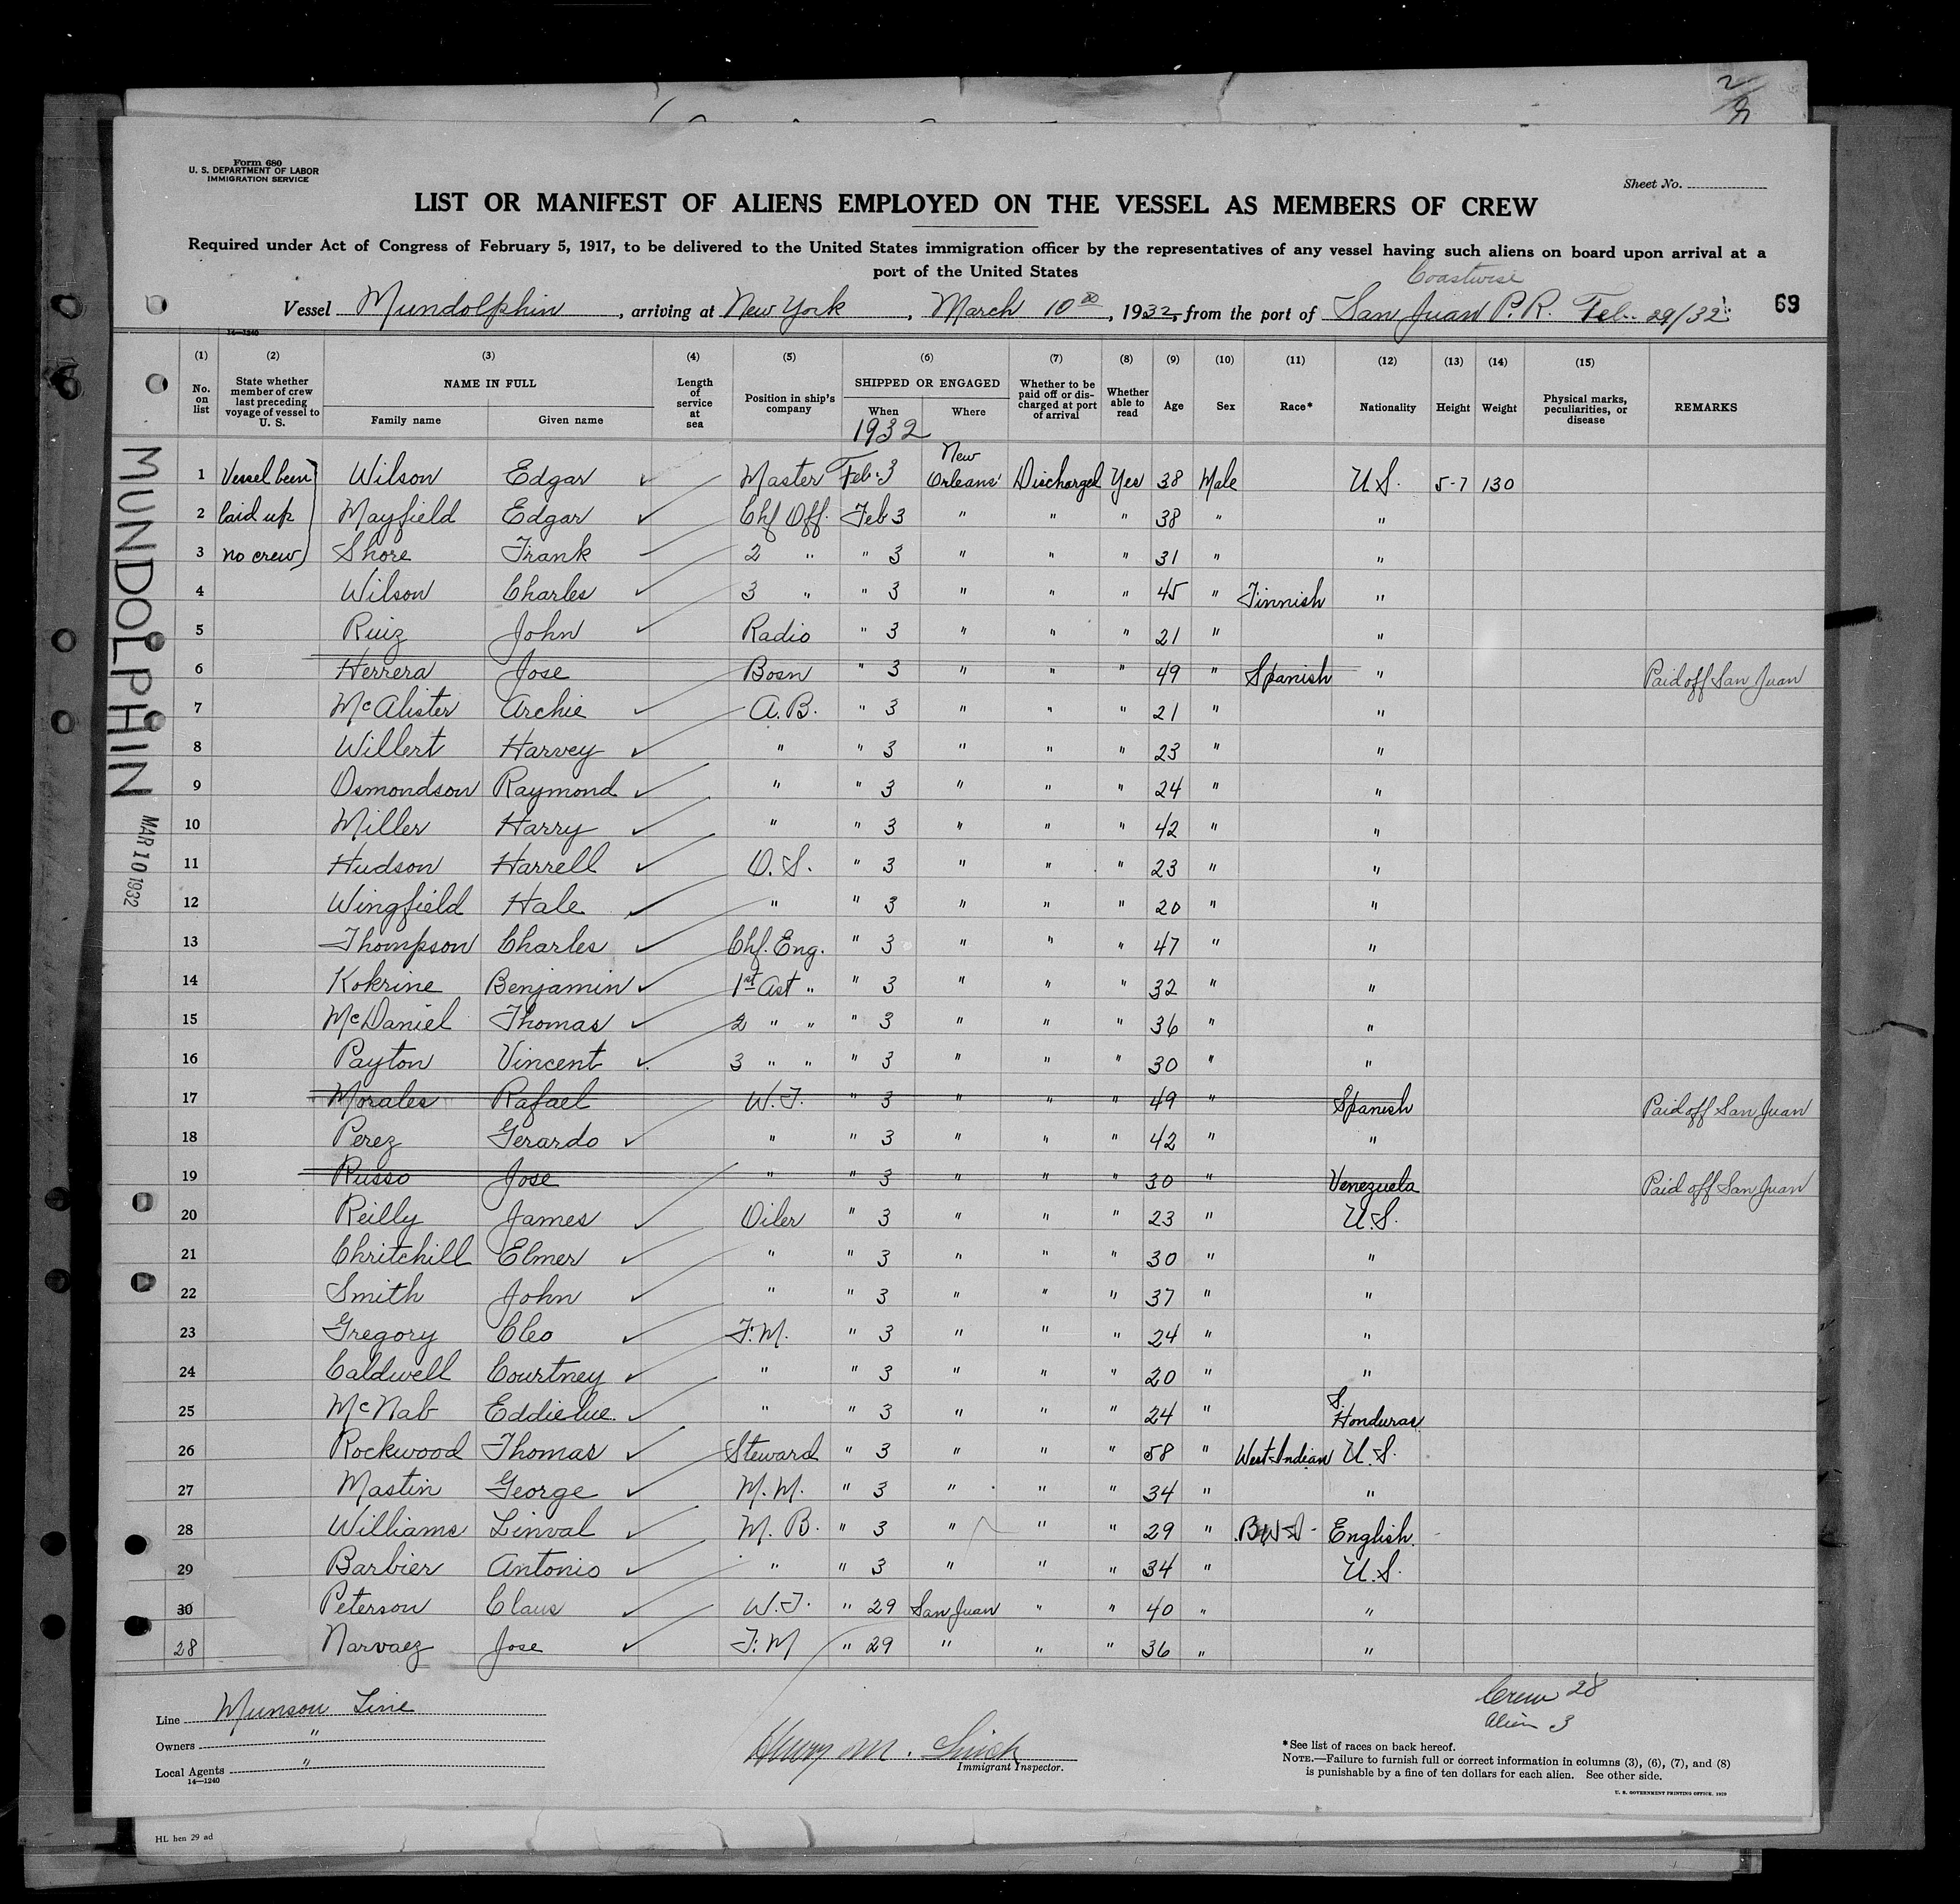 Form 680
U. S. DEPARTMENT OF LABOR
IMMIGRATION SERVICE
Sheet No.
LIST OR MANIFEST OF ALIENS EMPLOYED ON THE VESSEL AS MEMBERS OF CREW
Required under Act of Congress of February 5, 1917, to be delivered to the United States immigration officer by the representatives of any vessel having such aliens on board upon arrival at a
port of the United States
Coastwise
Vessel Mundolphin, arriving at New York, March 10th, 1932, from the port of San Juan P.R. Feb. 29/32 69
14—1240
(1) (2) (3) (4) (5) (6) (7) (8) (9) (10) (11) (12) (13) (14) (15)
No. on list State whether member of crew last preceding voyage of vessel to U. S. NAME IN FULL Family name Given name Length of service at sea Position in ship's company SHIPPED OR ENGAGED When Where Whether to be paid off or discharged at port of arrival Whether able to read Age Sex Race* Nationality Height Weight Physical marks, peculiarities, or disease REMARKS
1932
1 Vessel been Wilson Edgar Master Feb. 3 New Orleans Discharged Yes 38 Male U.S. 5-7 130
2 laid up Mayfield Edgar Chf Off. Feb 3 " " " 38 " "
3 no crew Shore Frank 2 " " 3 " " " 31 " "
4 Wilson Charles 3 " " 3 " " " 45 " Finnish "
5 Ruiz John Radio " 3 " " " 21 " "
6 Herrera Jose Bosn " 3 " " " 49 " Spanish " Paid off San Juan
7 McAlister Archie A.B. " 3 " " " 21 " "
8 Willert Harvey " " 3 " " " 23 " "
9 Osmondson Raymond " " 3 " " " 24 " "
10 Miller Harry " " 3 " " " 42 " "
11 Hudson Harrell O.S. " 3 " " " 23 " "
12 Wingfield Hale " " 3 " " " 20 " "
13 Thompson Charles Chf. Eng. " 3 " " " 47 " "
14 Kokrine Benjamin 1st Ast " " 3 " " " 32 " "
15 McDaniel Thomas 2 " " " 3 " " " 36 " "
16 Payton Vincent 3 " " " 3 " " " 30 " "
17 Morales Rafael W.T. " 3 " " " 49 " Spanish Paid off San Juan
18 Perez Gerardo " " 3 " " " 42 " "
19 Russo Jose " " 3 " " " 30 " Venezuela Paid off San Juan
20 Reilly James Oiler " 3 " " " 23 " U.S.
21 Chritchill Elmer " " 3 " " " 30 " "
22 Smith John " " 3 " " " 37 " "
23 Gregory Cleo F.M. " 3 " " " 24 " "
24 Caldwell Courtney " " 3 " " " 20 " "
25 McNab Eddielue " " 3 " " " 24 " S. Honduras
26 Rockwood Thomas Steward " 3 " " " 58 " West Indian U.S.
27 Mastin George M.M. " 3 " " " 34 " "
28 Williams Linval M.B. " 3 " " " 29 " B.W.I. English
29 Barbier Antonio " " 3 " " " 34 " U.S.
30 Peterson Claus W.T. " 29 San Juan " " 40 " "
28 Narvaez Jose F.M " 29 " " " 36 " "
MUNDOLPHIN
MAR 10 1932
Crew 28
Alien 3
Line Munson Line
Owners "
Local Agents "
14—1240
Henry M.
Immigrant Inspector.
*See list of races on back hereof.
NOTE.—Failure to furnish full or correct information in columns (3), (6), (7), and (8)
is punishable by a fine of ten dollars for each alien. See other side.
U. S. GOVERNMENT PRINTING OFFICE, 1929
HL hen 29 ad